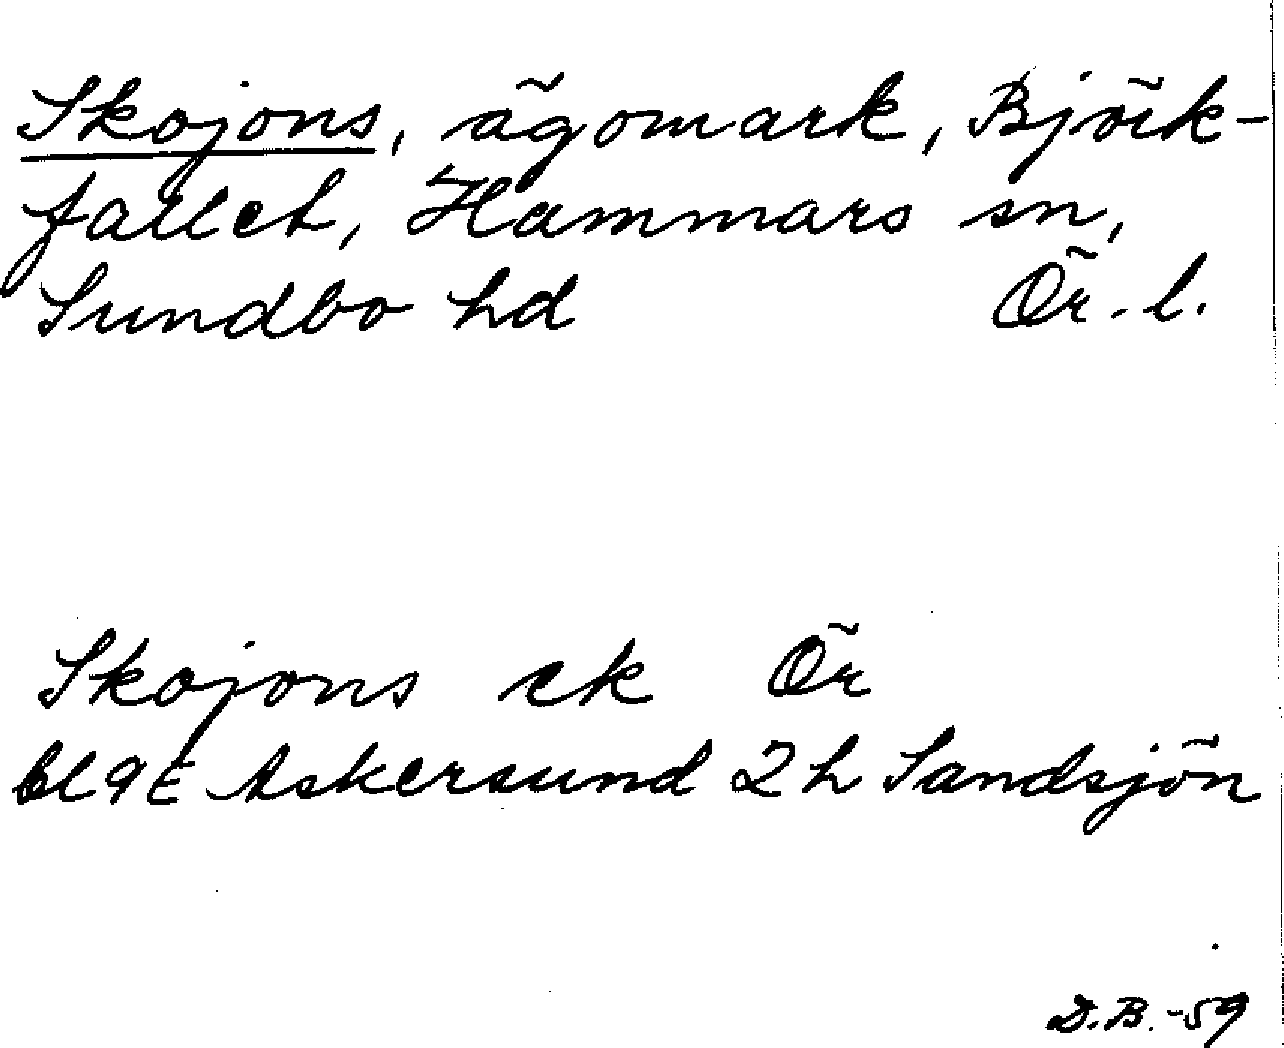 Skojons, ägomark, Björk-
fallet, Hammars sn,
Sundbo hd Ör. l.
Skojons ek Ör
bl 9E Askersund 2h Sandsjön
D.B. -59